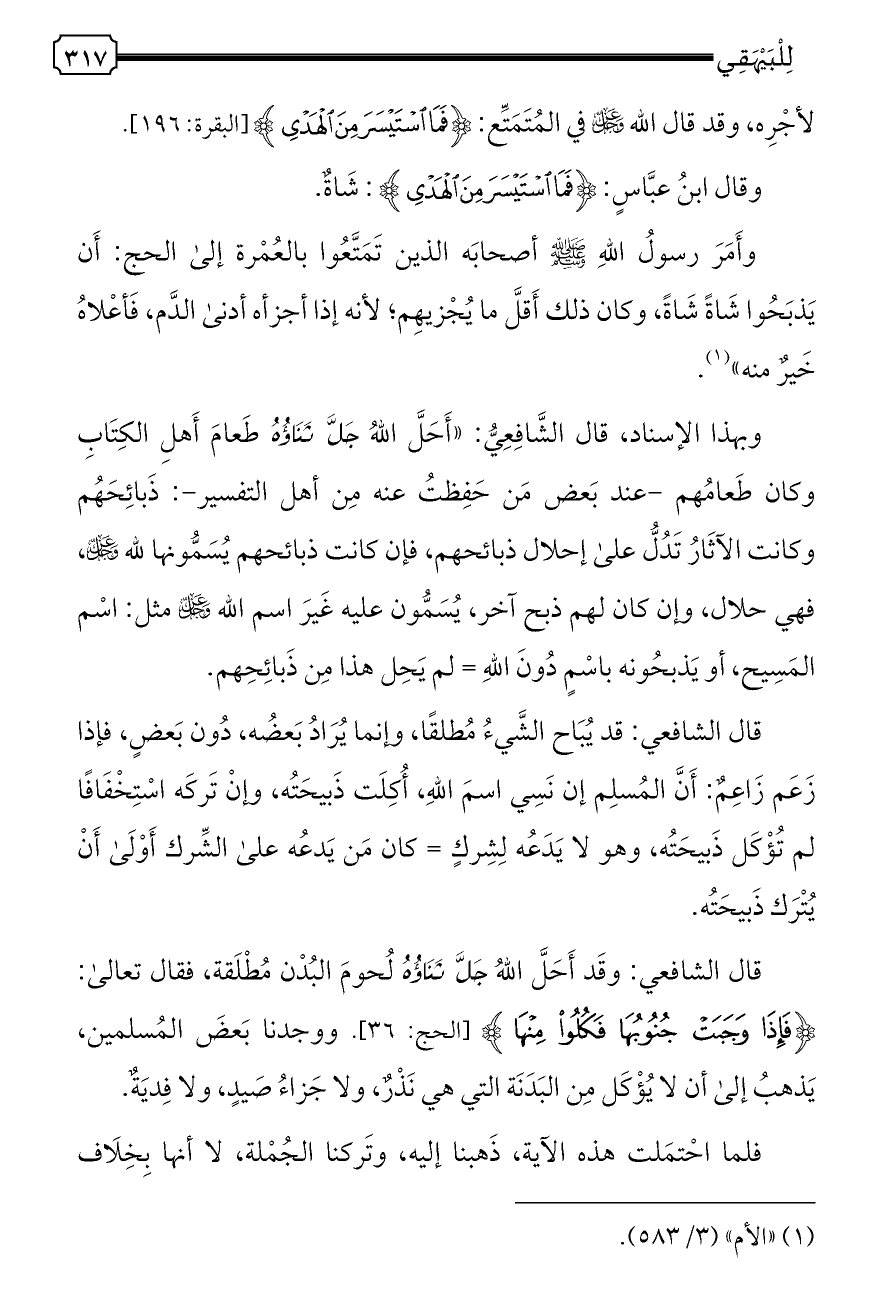 لِلْبَيْهَقِي
٣١٧
لأجْرِه، وقد قال الله ﷿ في المُتَمَتِّع: ﴿فَمَا ٱسْتَيْسَرَ مِنَ ٱلْهَدْىِ﴾ [البقرة: ١٩٦].
وقال ابنُ عبَّاسٍ: ﴿فَمَا ٱسْتَيْسَرَ مِنَ ٱلْهَدْىِ﴾ : شَاةٌ.
وأَمَرَ رسولُ اللهِ ﷺ أصحابَه الذين تَمَتَّعُوا بالعُمْرة إلىٰ الحج: أَن
يَذبَحُوا شَاةً شَاةً، وكان ذلك أَقلَّ ما يُجْزيهِم؛ لأنه إذا أجزأه أدنىٰ الدَّم، فَأعْلاهُ
خَيرٌ منه»(١).
وبهذا الإسناد، قال الشَّافِعِيُّ: «أَحَلَّ اللهُ جَلَّ ثَنَاؤُهُ طَعامَ أَهلِ الكِتَابِ
وكان طَعامُهم -عند بَعض مَن حَفِظتُ عنه مِن أهل التفسير-: ذَبائِحَهُم
وكانت الآثَارُ تَدُلُّ علىٰ إحلال ذبائحهم، فإن كانت ذبائحهم يُسَمُّونها لله ﷿،
فهي حلال، وإن كان لهم ذبح آخر، يُسَمُّون عليه غَيرَ اسم الله ﷿ مثل: اسْم
المَسِيح، أو يَذبحُونه باسْمٍ دُونَ اللهِ = لم يَحِل هذا مِن ذَبائِحِهم.
قال الشافعي: قد يُبَاح الشَّيءُ مُطلقًا، وإنما يُرَادُ بَعضُه، دُون بَعضٍ، فإذا
زَعَم زَاعِمٌ: أَنَّ المُسلِم إن نَسِي اسمَ اللهِ، أُكِلَت ذَبيحَتُه، وإنْ تَركَه اسْتِخْفَافًا
لم تُؤْكَل ذَبيحَتُه، وهو لا يَدَعُه لِشِركٍ = كان مَن يَدعُه علىٰ الشِّرك أَوْلَىٰ أَنْ
يُتْرَك ذَبيحَتُه.
قال الشافعي: وقَد أَحَلَّ اللهُ جَلَّ ثَنَاؤُهُ لُحومَ البُدْن مُطْلَقة، فقال تعالىٰ:
﴿فَإِذَا وَجَبَتْ جُنُوبُهَا فَكُلُوا۟ مِنْهَا﴾ [الحج: ٣٦]. ووجدنا بَعضَ المُسلمين،
يَذهبُ إلىٰ أن لا يُؤْكَل مِن البَدَنَة التي هي نَذْرٌ، ولا جَزاءُ صَيدٍ، ولا فِديَةٌ.
فلما احْتمَلت هذه الآية، ذَهبنا إليه، وتَركنا الجُمْلة، لا أنها بِخِلَاف
(١) «الأم» (٣/ ٥٨٣).